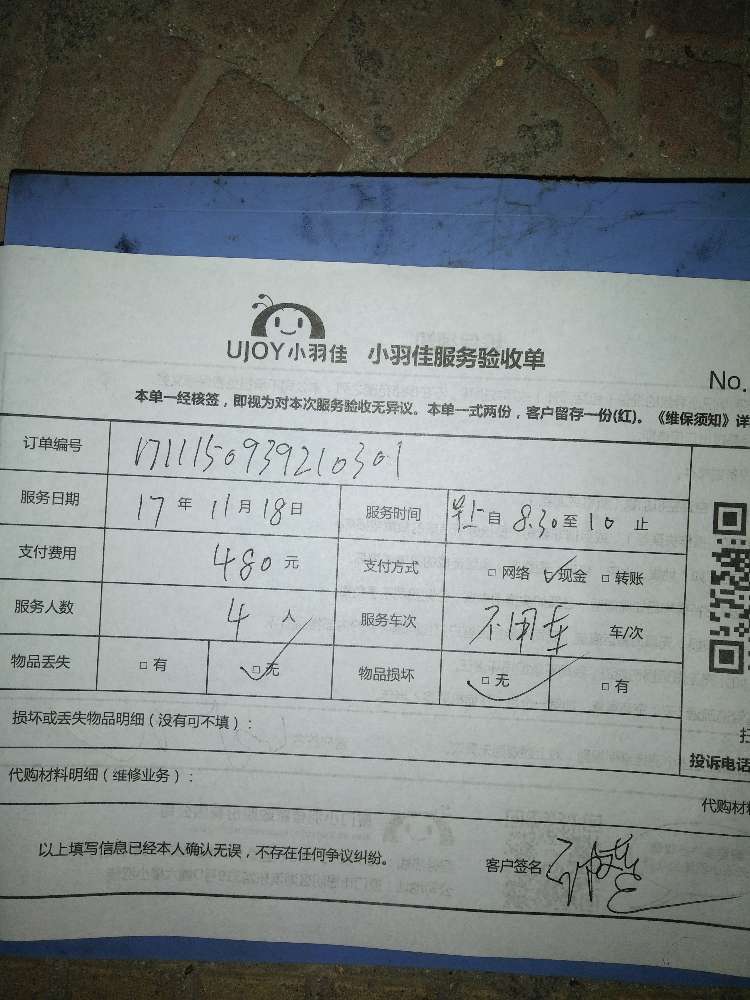 UJOY小羽佳 小羽佳服务验收单
No.
本单一经核签，即视为对本次服务验收无异议。本单一式两份，客户留存一份(红)。《维保须知》详
订单编号 171115093921030​1
服务日期 17 年 11 月 18 日 服务时间 早上 自 8.30 至 10 止
支付费用 480 元 支付方式 □ 网络 ☑ 现金 □ 转账
服务人数 4 人 服务车次 不用车 车/次
物品丢失 □ 有 ☑ 无 物品损坏 ☑ 无 □ 有
损坏或丢失物品明细（没有可不填）：
投诉电话
代购材料明细（维修业务）：
代购材
以上填写信息已经本人确认无误，不存在任何争议纠纷。 客户签名